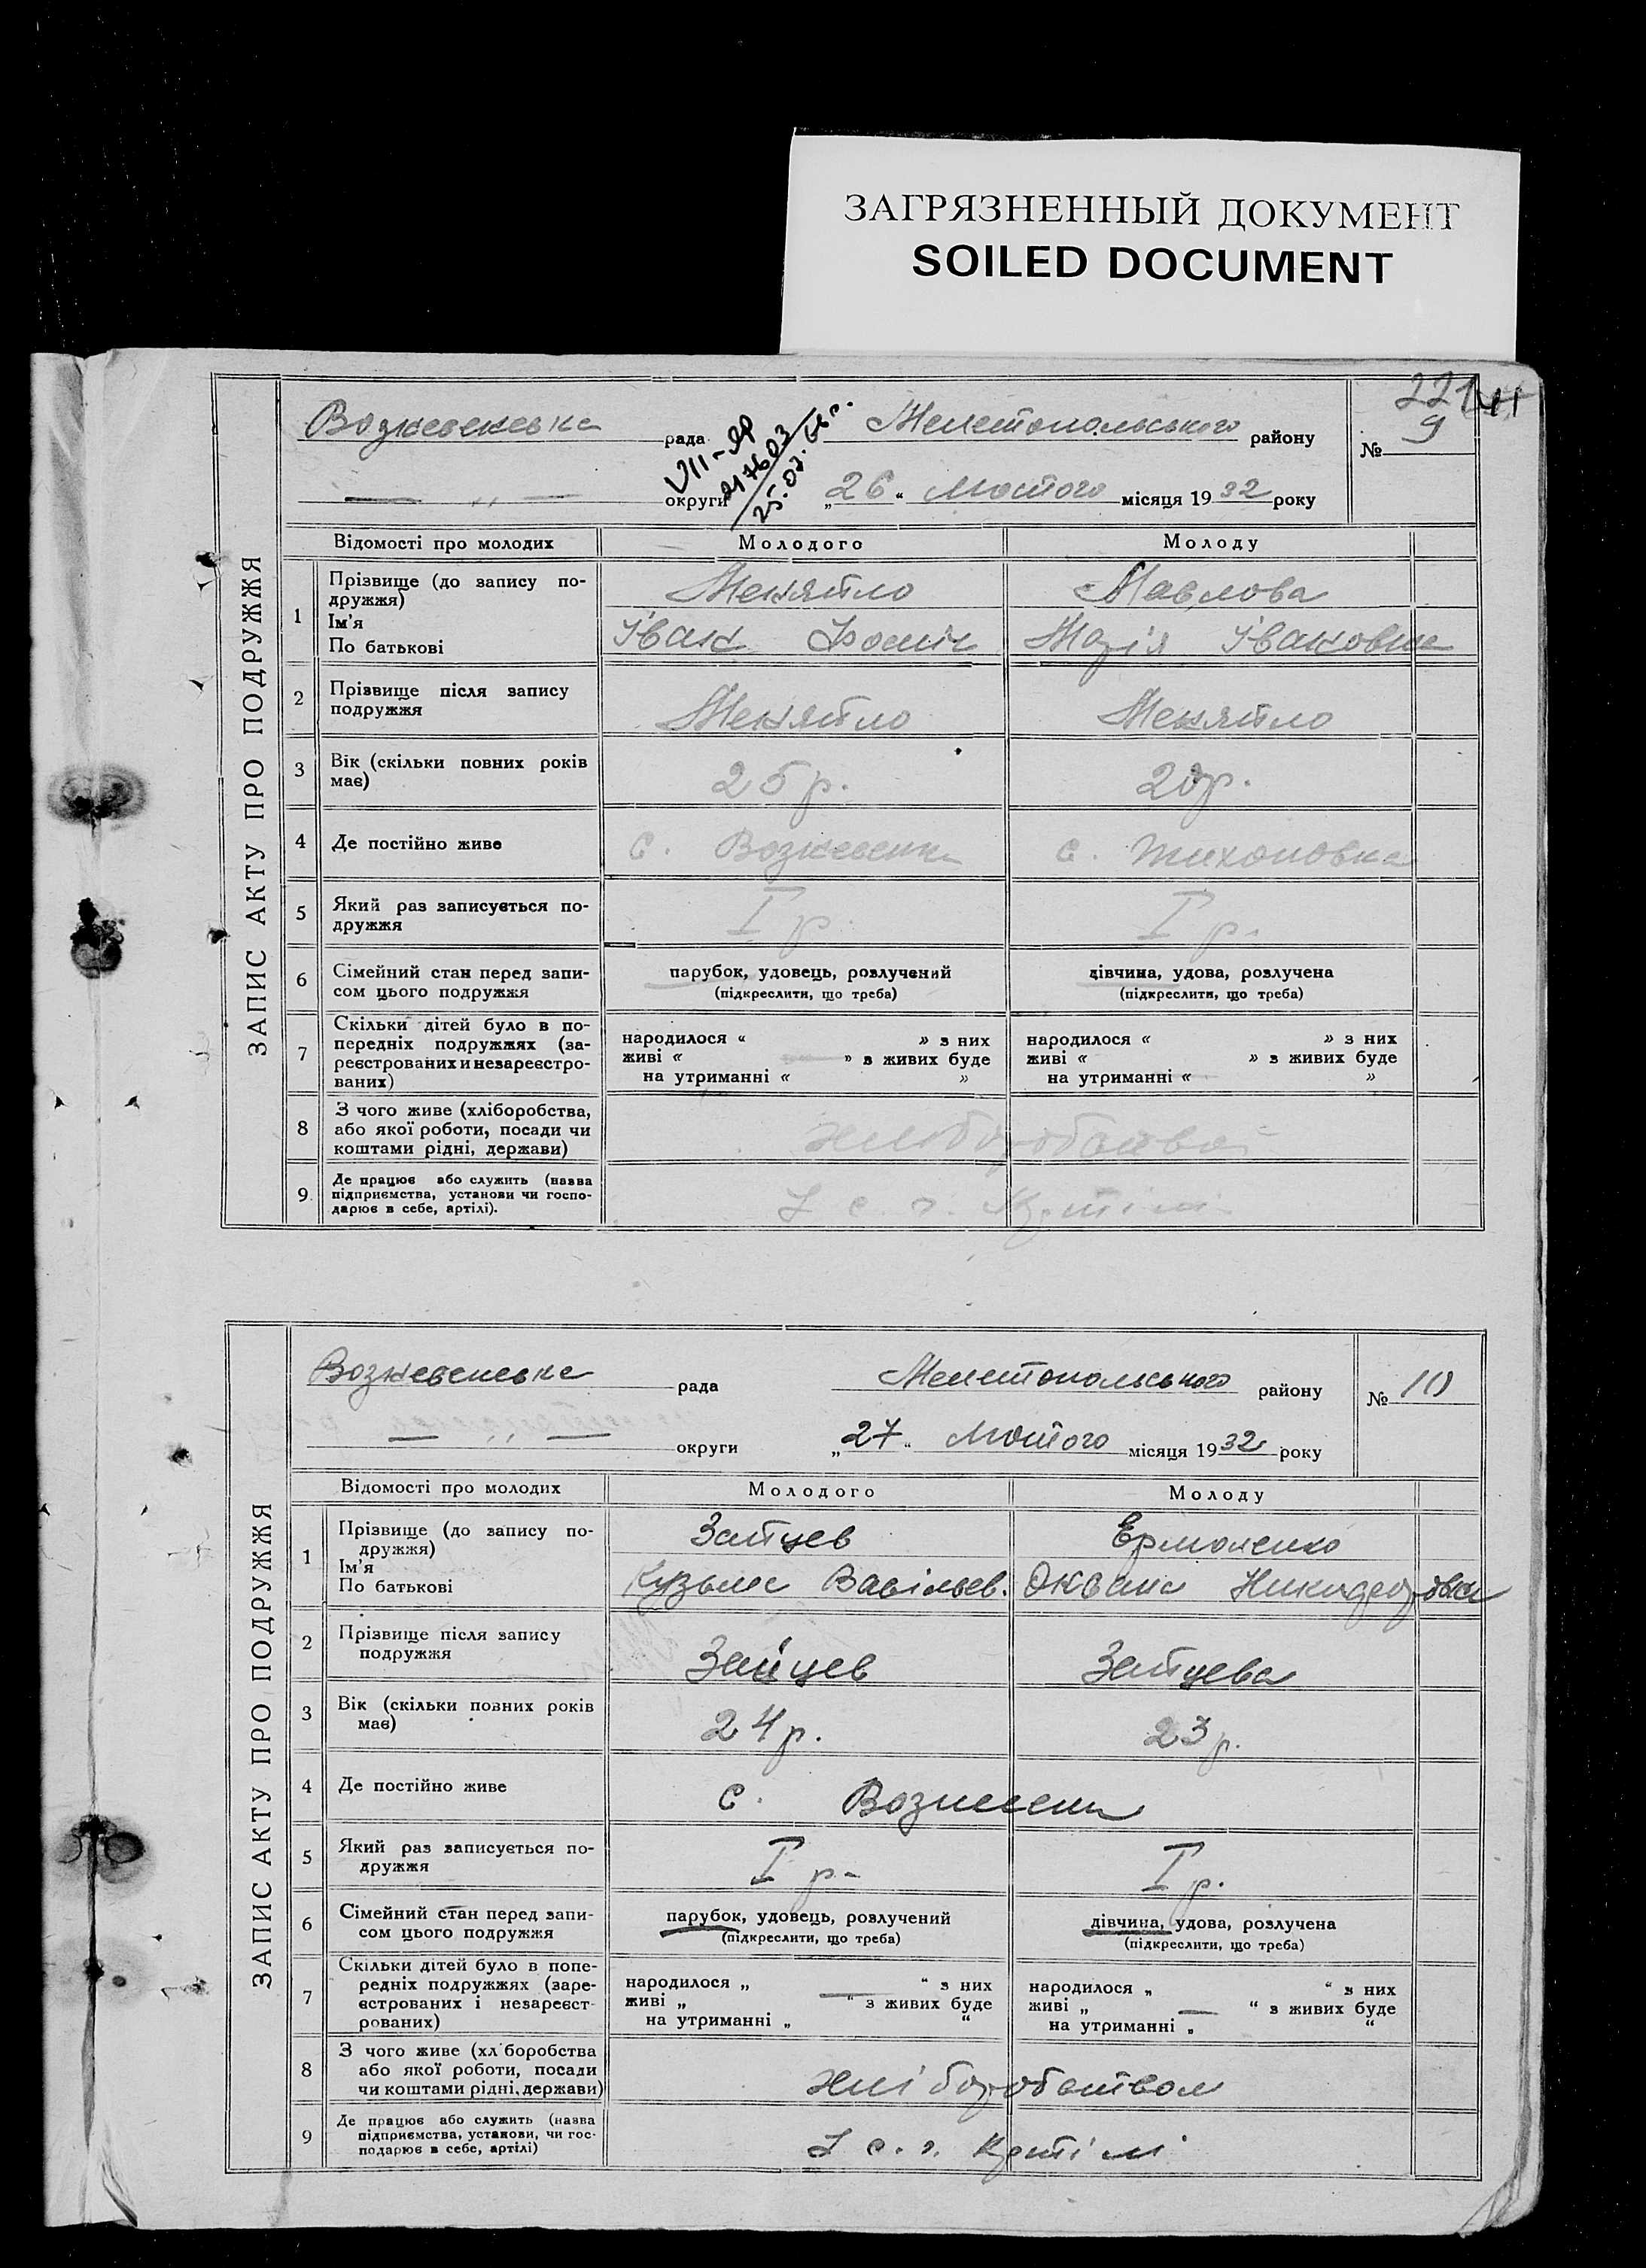 ЗАГРЯЗНЕННЫЙ ДОКУМЕНТ
SOILED DOCUMENT
ЗАПИС АКТУ ПРО ПОДРУЖЖЯ
221
Вознесенська рада Мелетопольського району № 9
— „ — округи „26“ Лютого місяця 1932 року
VII-ЯР
217603
25.03.66 г.
Відомості про молодих Молодого Молоду
1 Прізвище (до запису по-
дружжя)
Ім'я
По батькові
Меняйло Павлова
Іван Марія Івановна
2 Прізвище після запису
подружжя
Меняйло Меняйло
3 Вік (скільки повних років
має)
25 р. 20 р.
4 Де постійно живе
с. Вознесенка с. Тихоновка
5 Який раз записується по-
дружжя
I р. I р.
6 Сімейний стан перед запи-
сом цього подружжя
парубок, удовець, розлучений дівчина, удова, розлучена
(підкреслити, що треба) (підкреслити, що треба)
7 Скільки дітей було в по-
передніх подружжях (за-
реєстрованих и незареєстро-
ваних)
народилося « » з них народилося « » з них
живі « — » з живих буде живі « » з живих буде
на утриманні « » на утриманні « — »
8 З чого живе (хліборобства,
або якої роботи, посади чи
коштами рідні, держави)
хліборобство
9. Де працює або служить (назва
підприємства, установи чи госпо-
дарює в себе, артілі).
с. г. Артілі
ЗАПИС АКТУ ПРО ПОДРУЖЖЯ
Вознесенська рада Мелетопольського району № 10
— „ — округи „27“ Лютого місяця 1932 року
Відомості про молодих Молодого Молоду
1 Прізвище (до запису по-
дружжя)
Ім'я
По батькові
Зайцев Ермоленко
Кузьма Васільев. Оксана Никифоровна
2 Прізвище після запису
подружжя
Зайцев Зайцева
3 Вік (скільки повних років
має)
24 р. 23 р.
4 Де постійно живе
с. Вознесенка
5 Який раз записується по-
дружжя
I р. I р.
6 Сімейний стан перед запи-
сом цього подружжя
парубок, удовець, розлучений дівчина, удова, розлучена
(підкреслити, що треба) (підкреслити, що треба)
7 Скільки дітей було в попе-
редніх подружжях (заре-
єстрованих і незареєст-
рованих)
народилося „ “ з них народилося „ “ з них
живі „ — “ з живих буде живі „ — “ з живих буде
на утриманні „ “ на утриманні „ “
8 З чого живе (хл боробства
або якої роботи, посади
чи коштами рідні, держави)
хліборобством
9 Де працює або служить (назва
підприємства, установи, чи гос-
подарює в себе, артілі)
с. г. Артілі